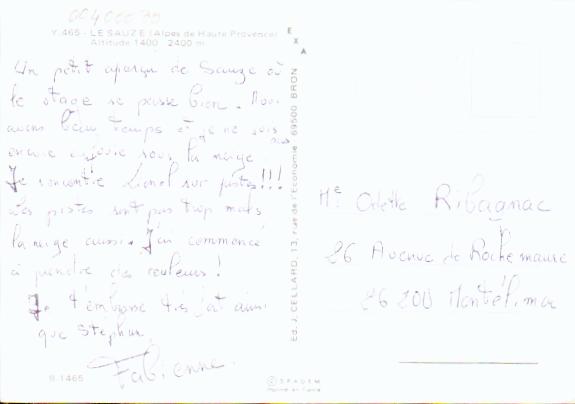 00400030
Y.465 - LE SAUZE (Alpes de Haute Provence)
Altitude 1400 2400 m
Un petit aperçu de Sauze où
le stage se passe bien. Nous
avons beau temps et je ne suis
pas
encore enfouie sous la neige
Je rencontre Lionel sur pistes!!!
Les pistes sont pas trop mals
la neige aussi. J'ai commencé
à prendre des couleurs!
Je t'embrasse très fort ainsi
que Stephan
Fabienne.
B.1465
EXA
Ed. J. CELLARD, 13, rue de l'Economie 69500 BRON
© SPADEM
Imprimé en France
Me Odette Ribagnac
26 Avenue de Rochemaure
26 200 Montélimar